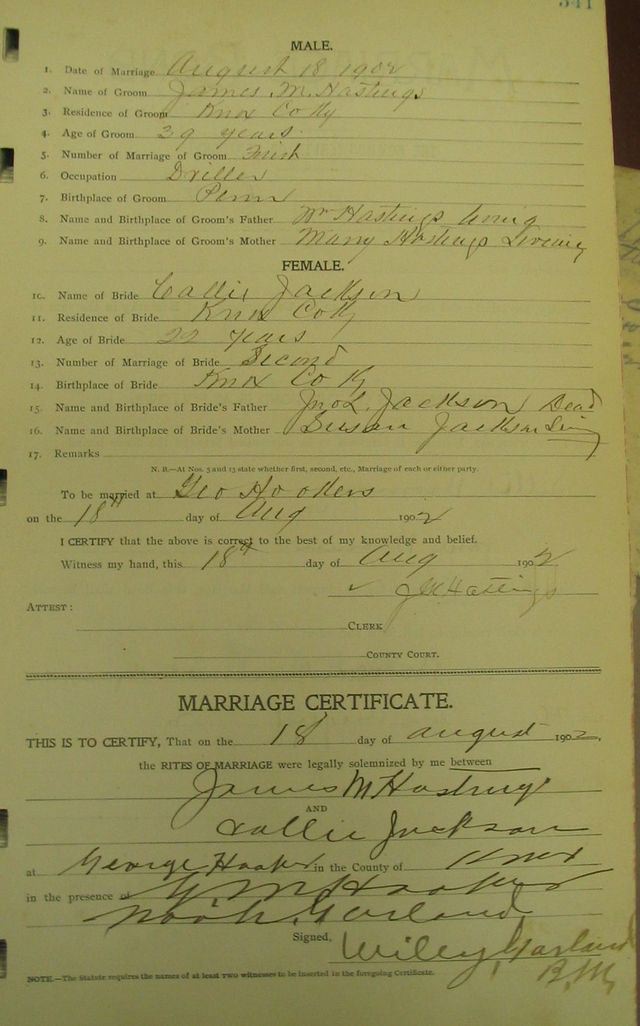 341
MALE.
1. Date of Marriage August 18 1902
2. Name of Groom James M. Hastings
3. Residence of Groom Knox Co Ky
4. Age of Groom 29 years
5. Number of Marriage of Groom First
6. Occupation Driller
7. Birthplace of Groom Penn
8. Name and Birthplace of Groom's Father Wm Hastings living
9. Name and Birthplace of Groom's Mother Mary Hastings Living
FEMALE.
10. Name of Bride Callie Jackson
11. Residence of Bride Knox Co Ky
12. Age of Bride 22 years
13. Number of Marriage of Bride Second
14. Birthplace of Bride Knox Co Ky
15. Name and Birthplace of Bride's Father Jno L. Jackson Dead
16. Name and Birthplace of Bride's Mother Susan Jackson Living
17. Remarks
N. B.—At Nos. 5 and 13 state whether first, second, etc., Marriage of each or either party.
To be married at Geo Hookers
on the 18th day of Aug 1902
I CERTIFY that the above is correct to the best of my knowledge and belief.
Witness my hand, this 18th day of Aug 1902
J M Hastings
ATTEST:
CLERK
COUNTY COURT.
MARRIAGE CERTIFICATE.
THIS IS TO CERTIFY, That on the 18 day of august 1902,
the RITES OF MARRIAGE were legally solemnized by me between
James M Hastings
AND
Callie Jackson
at George Hooker in the County of Knox
in the presence of Hooker
Noah Garland
Signed, Wiley Garland
NOTE.—The Statute requires the names of at least two witnesses to be inserted in the foregoing Certificate.